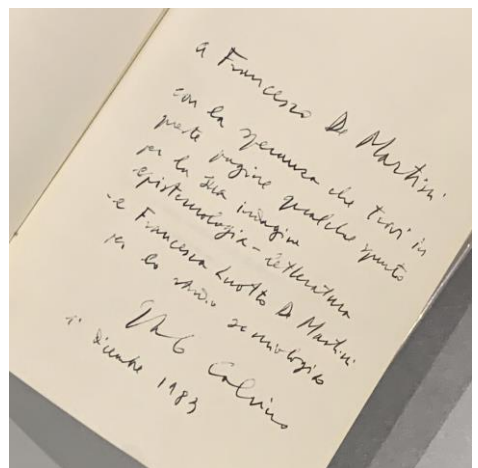 a Francesco De Martini
con la speranza che trovi in
queste pagine qualche spunto
per la sua indagine
epistemologia - letteratura
e Francesca Ruotto De Martini
per lo studio semiologico
Italo Calvino
1° dicembre 1983